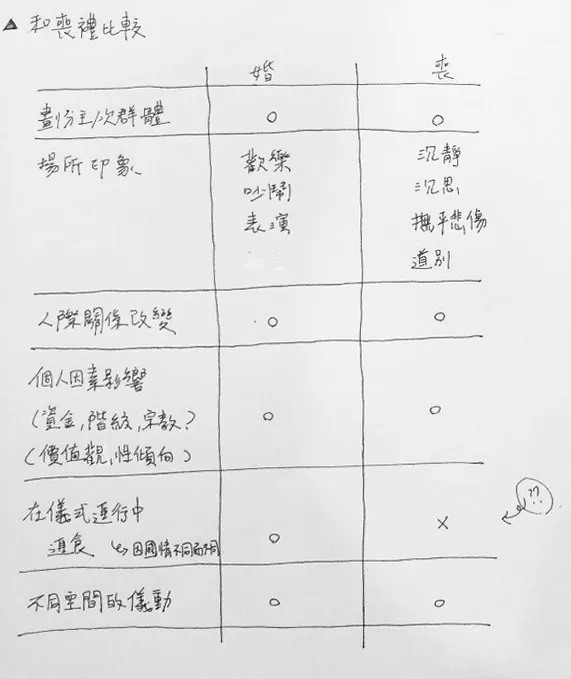 和喪禮比較
婚 喪
劃份主/次群體 ○ ○
場所印象 歡樂 沉靜
吵鬧 沉思
表演 撫平悲傷
道別
人際關係改變 ○ ○
個人因素影響
(資金,階級,宗教? ○ ○
(價值觀,性傾向)
在儀式進行中 × ??
進食 ↳因國情不同而不同 ○
不同空間的儀動 ○ ○